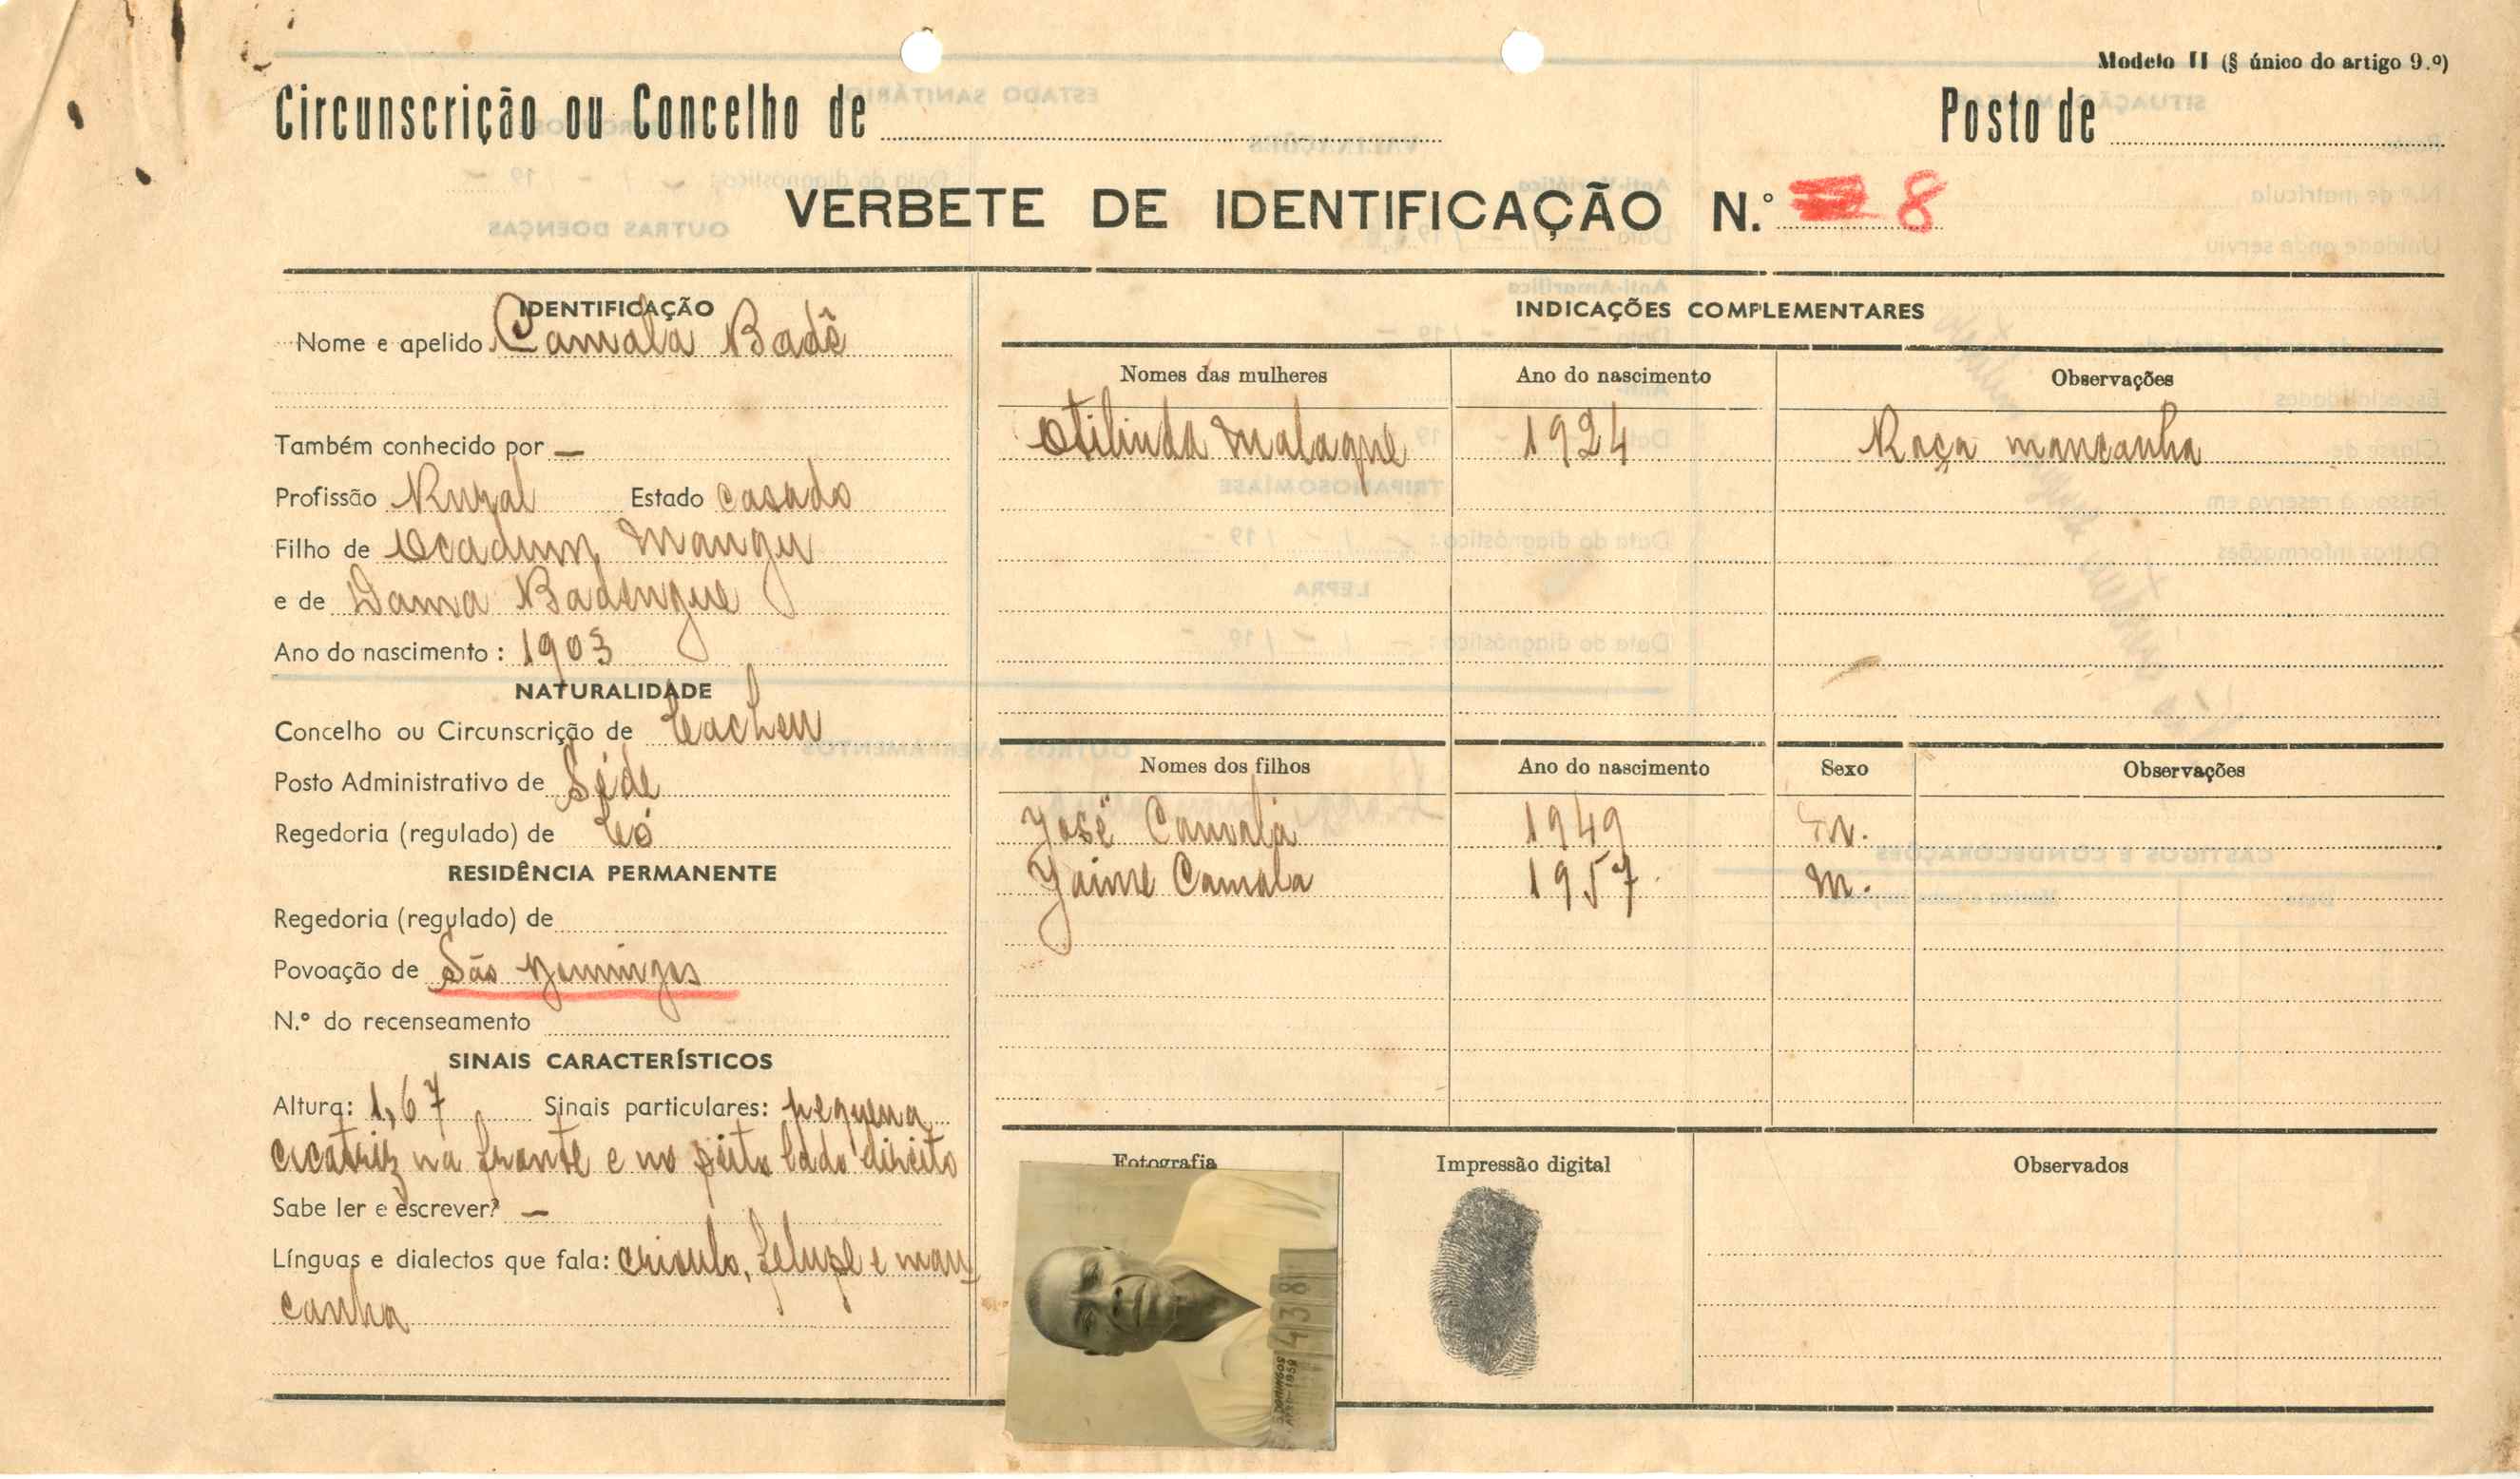 Modelo II (§ único do artigo 9.º)
Circunscrição ou Concelho de
Posto de
VERBETE DE IDENTIFICAÇÃO N.º 8
IDENTIFICAÇÃO
Nome e apelido Camala Badê
Também conhecido por —
Profissão Rural Estado casado
Filho de Ocadum Mangu
e de Dama Badengue
Ano do nascimento : 1903
NATURALIDADE
Concelho ou Circunscrição de Cacheu
Posto Administrativo de Séde
Regedoria (regulado) de Có
RESIDÊNCIA PERMANENTE
Regedoria (regulado) de
Povoação de São Domingos
N.º do recenseamento
SINAIS CARACTERÍSTICOS
Altura: 1,67 Sinais particulares: pequena
cicatriz na frante e no peito lado direito
Sabe ler e escrever? —
Línguas e dialectos que fala: crioulo, felupe e man
canha
INDICAÇÕES COMPLEMENTARES
Nomes das mulheres Ano do nascimento Observações
Otilinda Malaque 1924 Raça mancanha
Nomes dos filhos Ano do nascimento Sexo Observações
José Camala 1949 M.
Jaime Camala 1957 m.
Fotografia Impressão digital Observados
438
S. DOMINGOS
ANO-1959